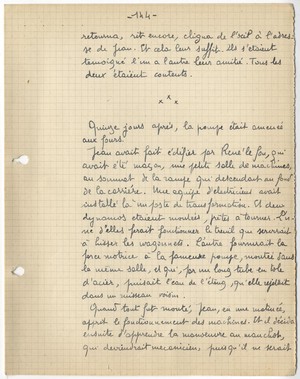 -144-
retourna, rit encore, cligna de l'œil à l'adres-
se de Jean. Et cela leur suffit. Ils s'étaient
témoigné l'un à l'autre leur amitié. Tous les
deux étaient contents.
x x x
Quinze jours après, la pompe était amenée
aux fours.
Jean avait fait édifier par René le fou, qui
avait été maçon, une petite salle de machines,
au sommet de la rampe qui descendait au fond
de la carrière. Une équipe d'électriciens avait
installé là un poste de transformation. Et deux
dynamos étaient montées, prêtes à tourner. L'u-
ne d'elles ferait fonctionner le treuil qui servirait
à hisser les wagonnets. L'autre fournirait la
force motrice à la fameuse pompe, montée dans
la même salle, et qui, par un long tube en tôle
d'acier, puisait l'eau de l'étang, qu'elle rejetait
dans un ruisseau voisin.
Quand tout fut monté, Jean, en une matinée,
apprit le fonctionnement des machines. Et il décida
ensuite d'apprendre la manœuvre au manchot,
qui deviendrait mécanicien, puisqu'il ne serait